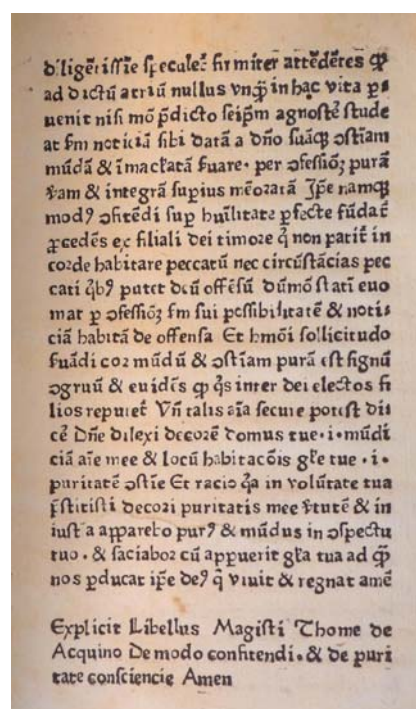 diligẽtissĩe speculet᷒ firmiter attẽdẽtes ꝙ
ad dictũ atriũ nullus vnꝗ̃ in hac vita ꝑ
uenit nisi mõ p̃dicto seip̃m agnoscẽ stude
at s̃m noticiã sibi datã a dño suãqꝫ ↄsciãm
mũdã & ĩmacl̃atã s̃uare. per ↄfessiõꝫ purã
ṽam & integrã supius mẽoratã Ip̃e namqꝫ
modꝰ ↄfitẽdi sup hũilitate ꝑfecte fũdat᷒
ꝓcedẽs ex filiali dei timore q̃ non patit᷒ in
corde habitare peccatũ nec circũstãcias pec
cati q̃bꝰ putet deũ offẽsũ dũmõ statĩ euo
mat ꝑ ↄfessiõꝫ s̃m sui possibilitatẽ & noti
ciã habitã de offensa Et hmõi sollicitudo
s̃uãdi cor mũdũ & ↄsciãm purã est signũ
ↄgruũ & euidẽs ꝙ q̃s inter dei electos fi
lios reputet᷒ Vñ talis aĩa secure potest di
cẽ Dñe dilexi decorẽ domus tue.i.mũdi
ciã aĩe mee & locũ habitacõis gl̃e tue .i.
puritatẽ ↄscĩe Et racio q̃a in volũtate tua
p̃stitisti decori puritatis mee ṽtutẽ & in
iusticia apparebo purꝰ & mũdus in ↄspectu
tuo . & saciabor cũ appuerit gl̃a tua ad ꝗ̃
nos ꝑducat ip̃e deꝰ q̃ viuit & regnat amẽ
Explicit Libellus Magistri Thome de
Acquino De modo confitendi.& de puri
tate consciencie Amen